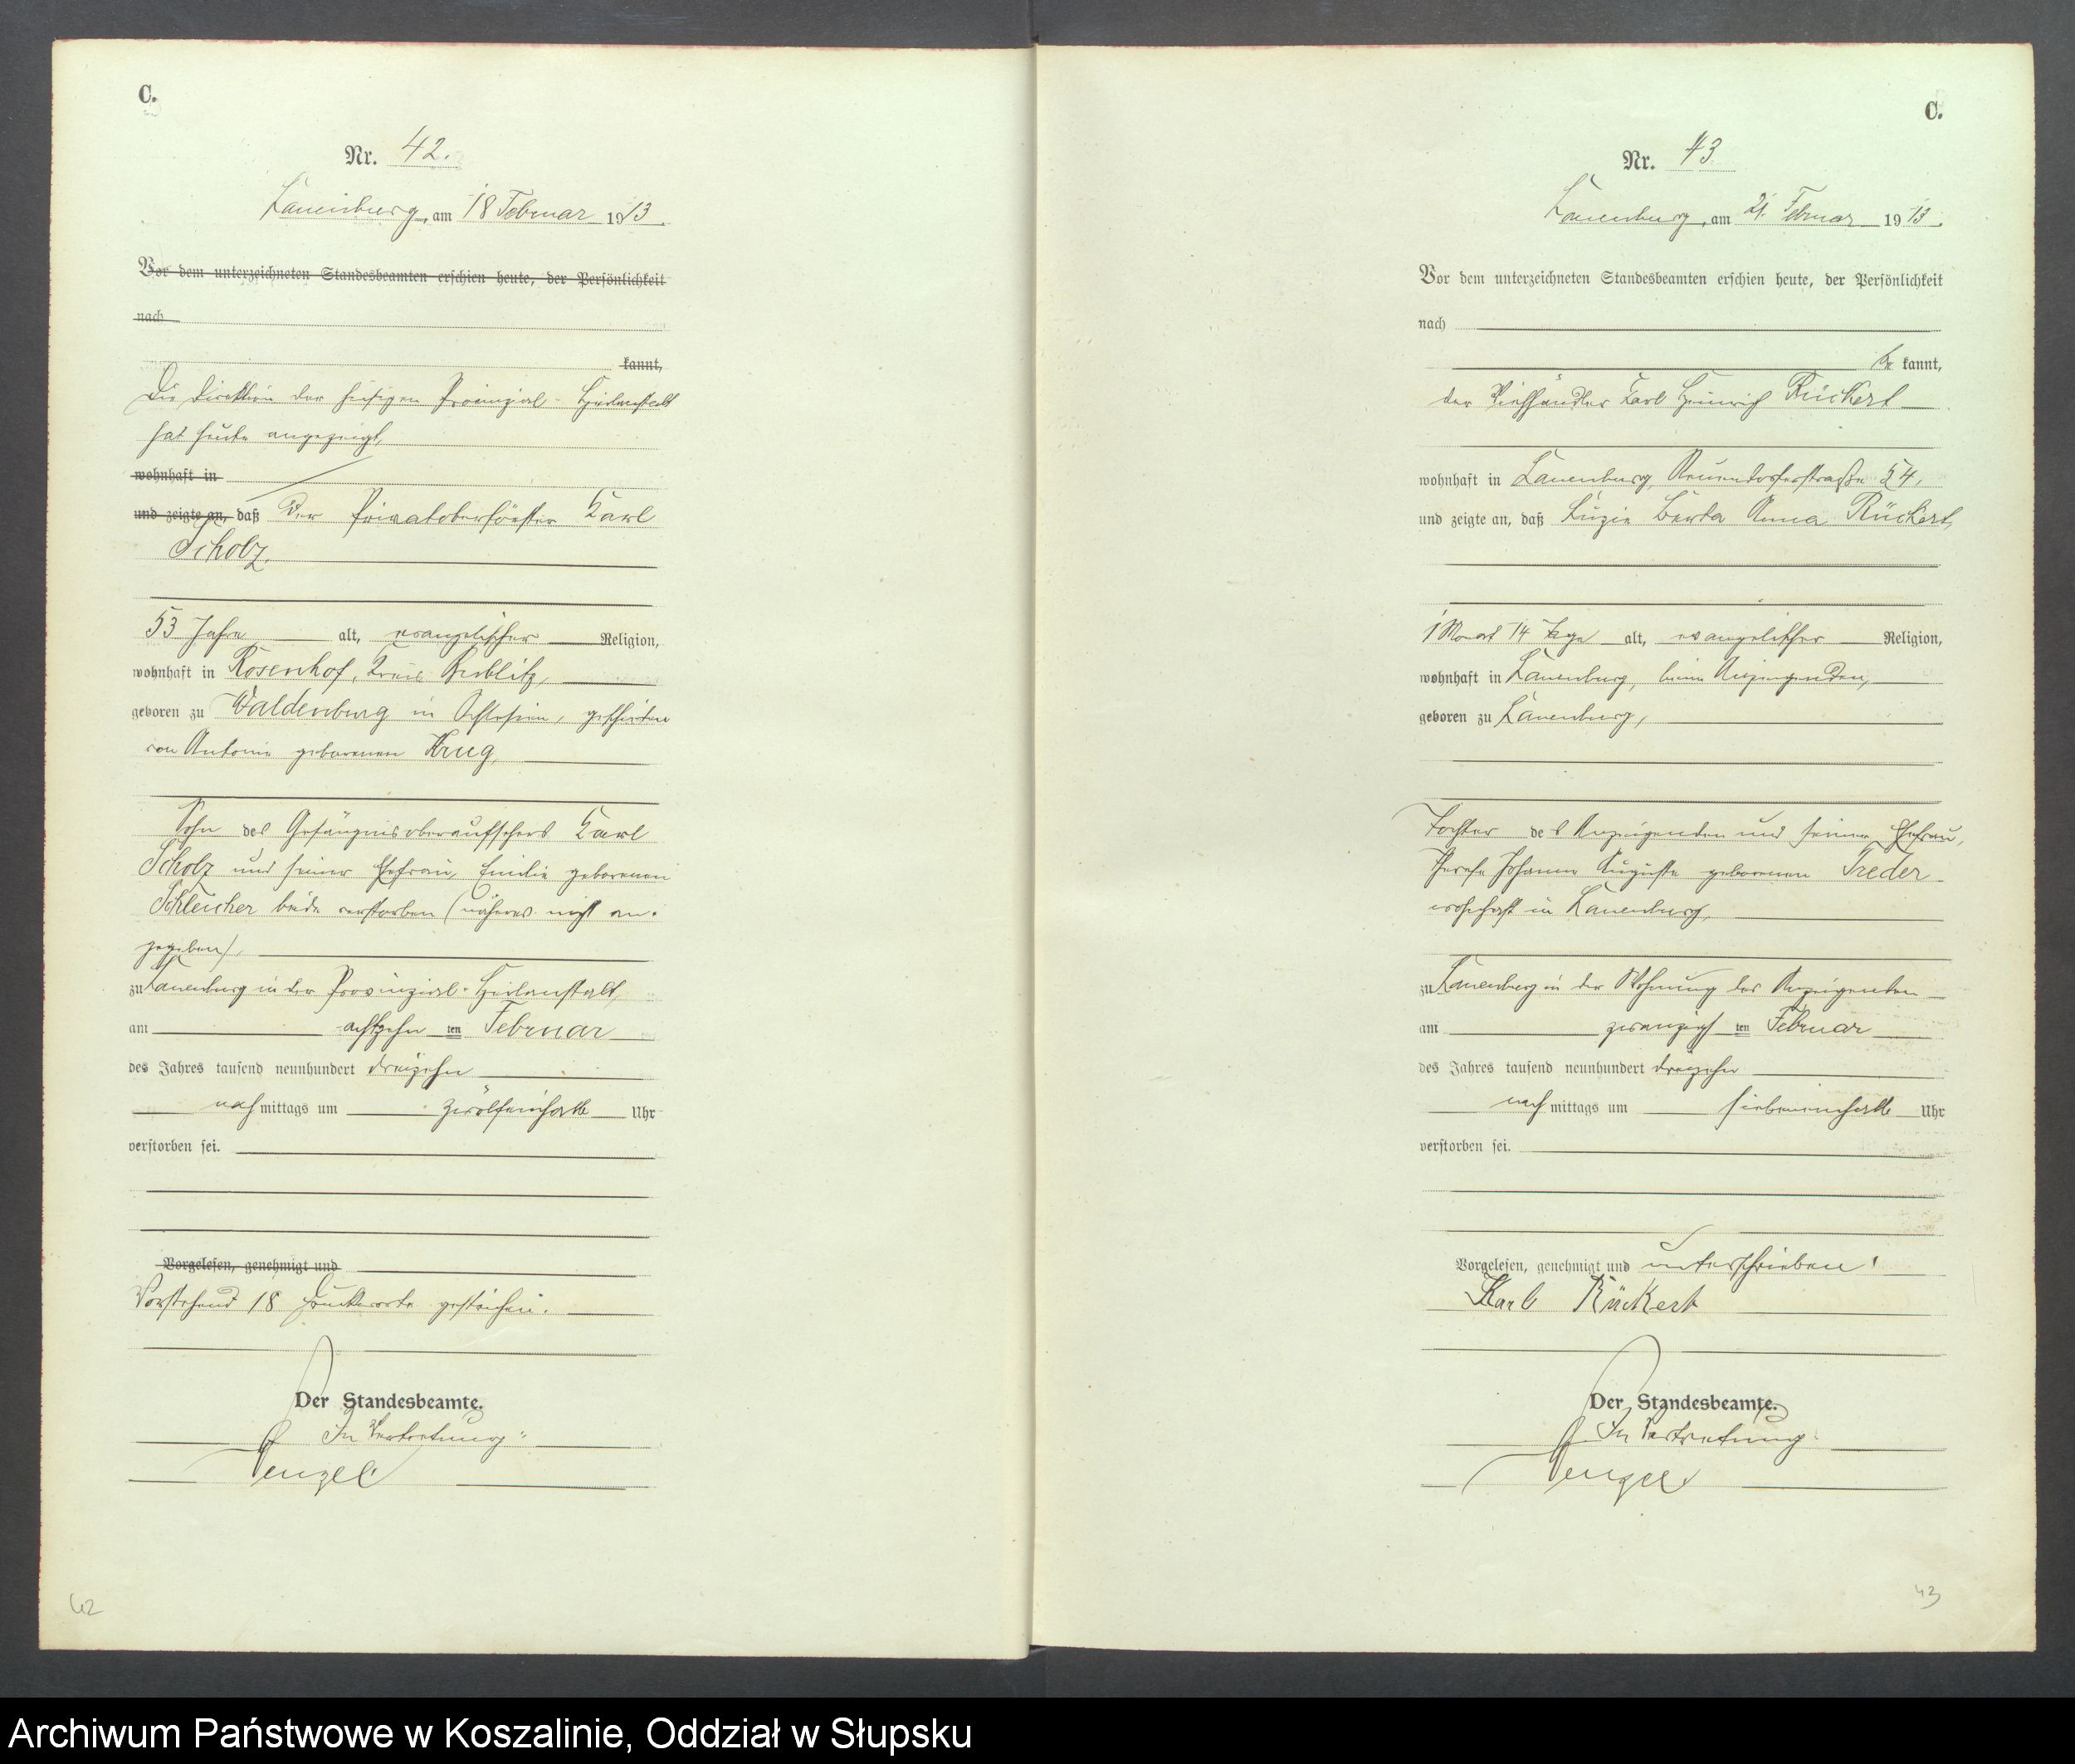 C.
Nr. 42.
Lauenburg, am 18 Februar 1913
Vor dem unterzeichneten Standesbeamten erschien heute, der Persönlichkeit
nach
kannt,
Die Direktion der hiesigen Provinzial-Heilanstalt
hat heute angezeigt,
wohnhaft in
und zeigte an, daß der Privatoberförster Karl
Scholz,
53 Jahre alt, evangelischer Religion,
wohnhaft in Rosenhof, Kreis Bublitz,
geboren zu Waldenburg in Schlesien, geschieden
von Antonie geborenen Krug,
Sohn des Gefängnisoberaufsehers Karl
Scholz und seiner Ehefrau, Emilie geborenen
Schleicher beide verstorben (näheres nicht an-
gegeben),
zu Lauenburg in der Provinzial-Heilanstalt,
am achtzehnten Februar
des Jahres tausend neunhundert dreizehn
nachmittags um zwölfeinhalb Uhr
verstorben sei.
Vorgelesen, genehmigt und
Vorstehend 18 Druckworte gestrichen.
Der Standesbeamte.
In Vertretung:
Wenzel
42
C.
Nr. 43
Lauenburg, am 21. Februar 1913.
Vor dem unterzeichneten Standesbeamten erschien heute, der Persönlichkeit
nach
be kannt,
der Viehhändler Karl Heinrich Rückert
wohnhaft in Lauenburg, Neuendorferstraße 54,
und zeigte an, daß Luzie Berta Anna Rückert,
1 Monat 14 Tage alt, evangelischer Religion,
wohnhaft in Lauenburg, beim Anzeigenden,
geboren zu Lauenburg,
Tochter des Anzeigenden und seiner Ehefrau,
Therese Johanne Auguste geborenen Treder
wohnhaft in Lauenburg,
zu Lauenburg in der Wohnung des Anzeigenden
am zwanzigsten Februar
des Jahres tausend neunhundert dreizehn
nachmittags um siebeneinhalb Uhr
verstorben sei.
Vorgelesen, genehmigt und unterschrieben:
Karl Rückert
Der Standesbeamte.
In Vertretung:
Wenzel
43
Archiwum Państwowe w Koszalinie, Oddział w Słupsku